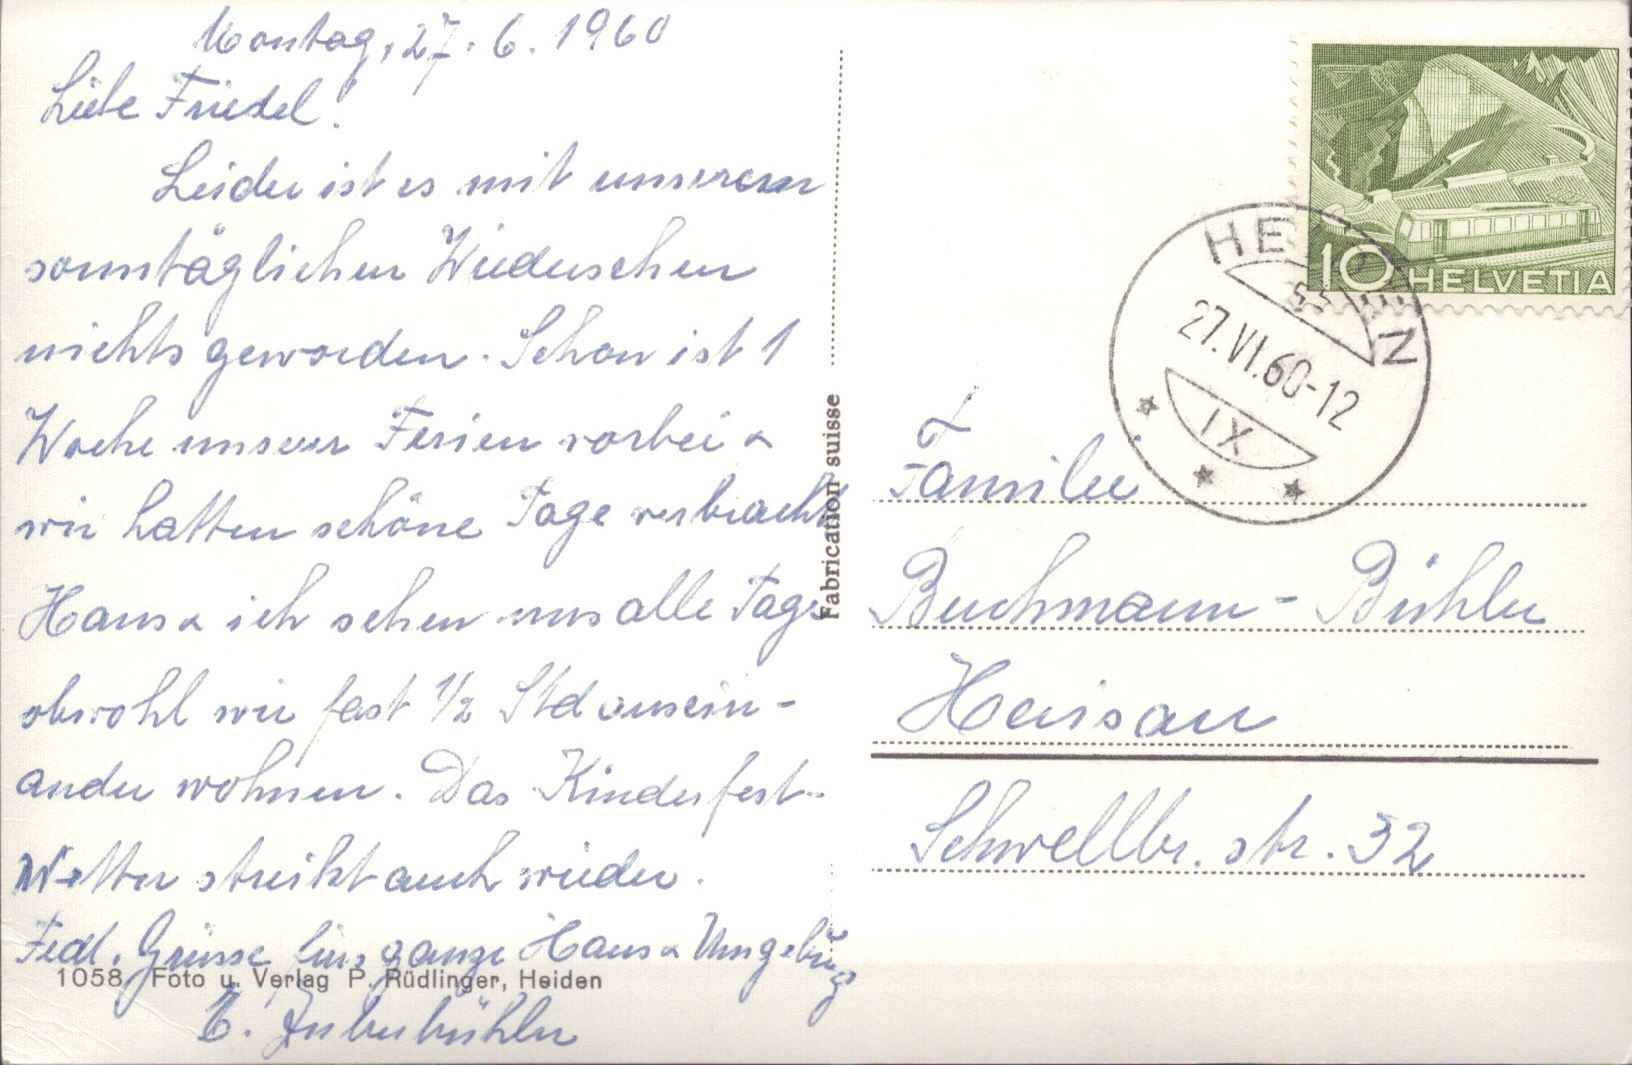 Montag, 27. 6. 1960
Liebe Friedel!
Leider ist es mit unserem
sonntäglichen Wiedersehen
nichts geworden. Schon ist 1
Woche unserer Ferien vorbei &
wir hatten schöne Tage verbracht.
Hans & ich sehen uns alle Tage
obwohl wir fast 1/2 Std ausein-
ander wohnen. Das Kinderfest-
Wetter streikt auch wieder.
Frdl. Grüsse fürs ganze Haus & Umgebung
1058 Foto u. Verlag P. Rüdlinger, Heiden
Fabrication suisse
10 HELVETIA
HEIDEN
27.VI.60-12
IX
Familie
Buchmann-Bühler
Herisau
Schwellbr. str. 32